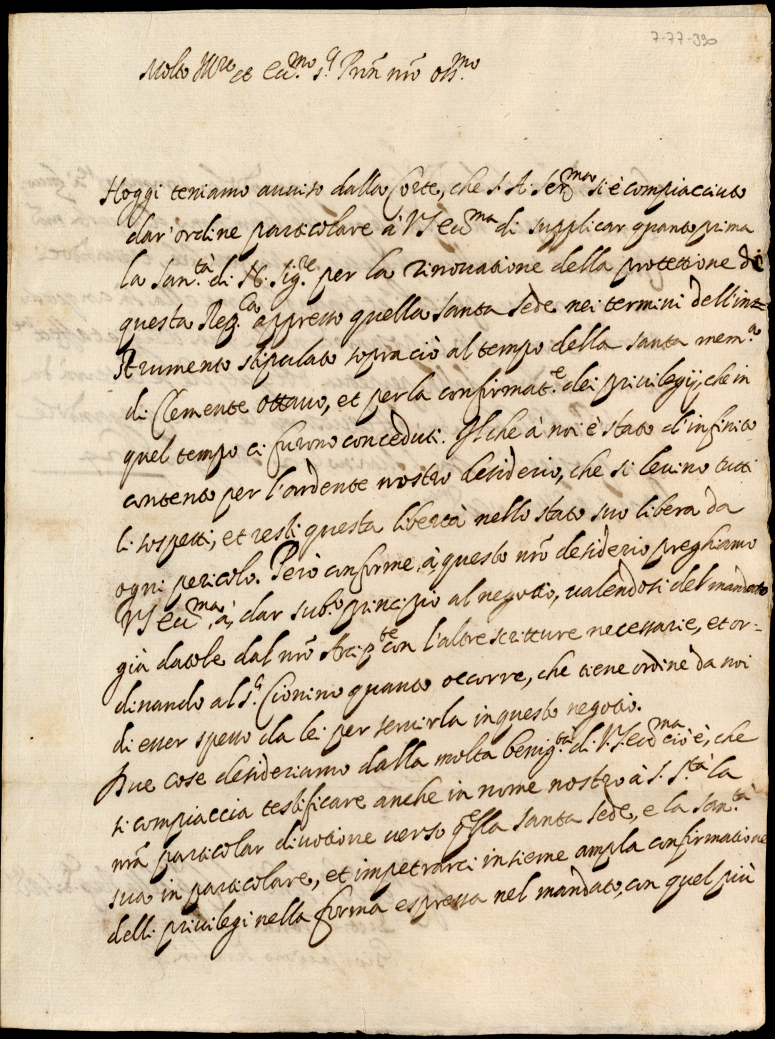 7-77-390
Molto Ill.re et Ecc.mo s.r Prõn nrõ oss.mo
Hoggi teniamo auuiso dalla Corte, che S. A. Ser.ma si è compiacciuto
dar' ordine particolare à VS Ecc.ma di supplicar quanto prima
la San.tà di N. Sig.re per la rinouatione della protettione di
questa Rep.ca appresso quella santa sede nei termini dell'in=
strumento stipulato sopra ciò al tempo della santa mem.a
di Clemente Ottauo, et per la confirmat.e dei priuilegij, che in
quel tempo ci furono conceduti. Il che à noi è stato d'infinito
contento per l'ardente nostro desiderio, che si leuino tutti
li sospetti, et resti questa libertà nello stato suo libera da
ogni pericolo. Però conforme à questo nrõ desiderio preghiamo
VS Ecc.ma à dar sub.o principio al negotio, ualendosi del mandato
già datole dal nrõ Arcip.te con l'altre scritture necessarie, et or=
dinando al s.r Cionino quanto occorre, che tiene ordine da noi
di esser spesso da lei per seruirla in questo negotio.
Due cose desideriamo dalla molta benig.tà di V.S. Ecc.ma cio è, che
si compiaccia testificare anche in nome nostro à S. S.tà la
nrã particolar diuotione uerso q.ella santa sede, e la san.tà
sua in particolare, et impetrarci insieme ampla confirmatione
delli priuilegi nella forma espressa nel mandato, con quel più